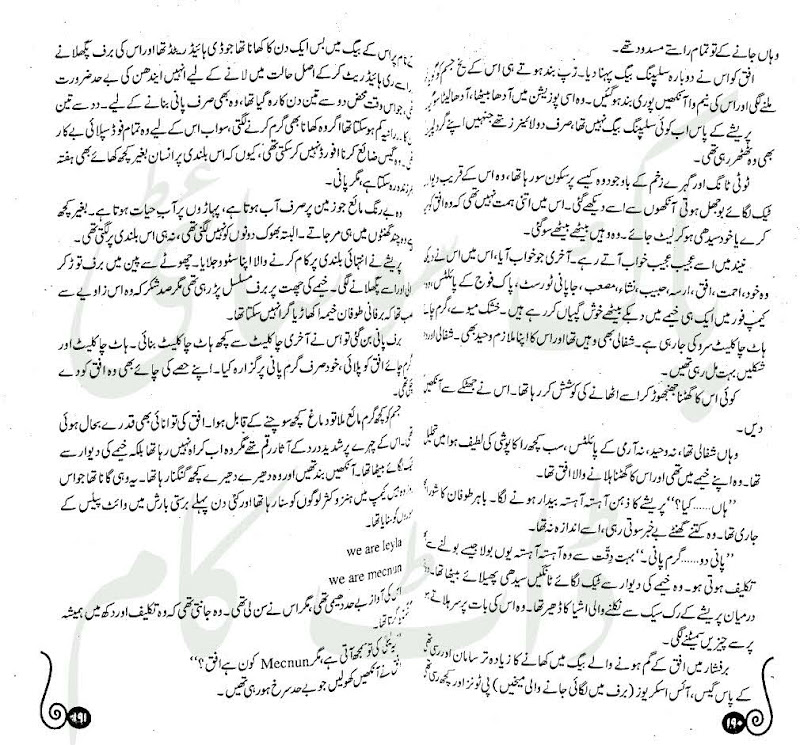 وہاں جانے کے تو تمام راستے مسدود تھے۔
افق کو اس نے دوبارہ سلیپنگ بیگ پہنا دیا۔ زپ بند ہوتے ہی اس کے یخ جسم کو
ملنے لگی اور اس کی نیم وا آنکھیں پوری بند ہو گئیں۔ وہ اسی پوزیشن میں آدھا بیٹھا، آدھا لیٹا سو
پریشے کے پاس اب کوئی سلیپنگ بیگ نہیں تھا، صرف دو لائنرز تھے جنہیں اپنے گرد
بھی وہ ٹھٹھر رہی تھی۔
ٹوٹی ٹانگ اور گہرے زخم کے باوجود وہ کیسے پرسکون سو رہا تھا، وہ اس کے قریب دیوار
ٹیک لگائے بوجھل ہوتی آنکھوں سے اسے دیکھے گئی۔ اس میں اتنی ہمت نہیں تھی کہ وہ افق کو
کرے یا خود سیدھی ہو کر لیٹ جائے۔ وہ وہیں بیٹھے بیٹھے سو گئی۔
نیند میں اسے عجیب عجیب خواب آتے رہے۔ آخری جو خواب آیا، اس میں اس نے
وہ خود، احمت، افق، ارسہ، حبیب، نشاء، مصعب، جاپانی ٹورسٹ، پاک فوج کے پائلٹس،
کیمپ فور میں ایک ہی خیمے میں دبکے بیٹھے خوش گپیاں کر رہے ہیں۔ خشک میوے، گرم
ہاٹ چاکلیٹ سرو کی جا رہی ہے۔ شفالی بھی وہیں تھا اور اس کا اپنا ملازم وحید بھی۔ شفالی اور
شکلیں بہت مل رہی تھیں۔
کوئی اس کا گھٹنا جھنجھوڑ کر اسے اٹھانے کی کوشش کر رہا تھا۔ اس نے جھٹکے سے آنکھیں
دیں۔
وہاں شفالی تھا، نہ وحید، نہ آرمی کے پائلٹس، سب کچھ راکاپوشی کی لطیف ہوا میں تحلیل
تھا۔ وہ اپنے خیمے میں تھی اور اس کا گھٹنا ہلانے والا افق تھا۔
’’ہاں...... کیا؟‘‘ پریشے کا ذہن آہستہ آہستہ بیدار ہونے لگا۔ باہر طوفان کا شور
جاری تھا۔ وہ کتنے گھنٹے بے خبر سوتی رہی، اسے اندازہ نہ تھا۔
’’پانی دو...... گرم پانی۔‘‘ بہت دقّت سے وہ آہستہ آہستہ یوں بولا جیسے بولنے سے
تکلیف ہوتی ہو۔ وہ خیمے کی دیوار سے ٹیک لگائے ٹانگیں سیدھی پھیلائے بیٹھا تھا۔
درمیان پریشے کے رک سیک سے نکلنے والی اشیا کا ڈھیر تھا۔ وہ اس کی بات پر سر ہلا
پر سے چیزیں سمیٹنے لگی۔
برفشار میں افق کے گم ہونے والے بیگ میں کھانے کا زیادہ تر سامان اور
کے پاس گیس، آئس اسکریوز (برف میں لگائی جانے والی میخیں) پی ٹونز اور کچھ
۱۹۰
پر اس کے بیگ میں بس ایک دن کا کھانا تھا جو ڈی ہائیڈریٹڈ تھا اور اس کی برف پگھلانے
ری ہائیڈریٹ کر کے اصل حالت میں لانے کے لیے انہیں ایندھن کی بے حد ضرورت
جو اس وقت محض دو سے تین دن کا رہ گیا تھا، وہ بھی صرف پانی بنانے کے لیے۔ دو سے تین
کم ہو سکتا تھا اگر وہ کھانا بھی گرم کرنے لگتی، سو اب اس کے لیے وہ تمام فوڈ سپلائی بے کار
وہ گیس ضائع کرنا افورڈ نہیں کر سکتی تھی، کیوں کہ اس بلندی پر انسان بغیر کچھ کھائے بھی ہفتہ
زندہ رہ سکتا ہے، مگر پانی۔
وہ بے رنگ مائع جو زمین پر صرف آب ہوتا ہے، پہاڑوں پر آب حیات ہوتا ہے۔ بغیر کچھ
چند گھنٹوں میں ہی مر جاتے۔ البتہ بھوک دونوں کو نہیں لگتی تھی، نہ ہی اس بلندی پر لگتی تھی۔
پریشے نے انتہائی بلندی پر کام کرنے والا اپنا سٹوو جلایا۔ چھوٹے سے پین میں برف توڑ کر
اور اسے پگھلانے لگی۔ خیمے کی چھت پر برف مسلسل پڑ رہی تھی مگر صد شکر کہ وہ اس زاویے سے
تھا کہ برفانی طوفان خیمہ اکھاڑ یا گرا نہیں سکتا تھا۔
برف پانی بن گئی تو اس نے آخری چاکلیٹ سے کچھ ہاٹ چاکلیٹ بنائی۔ ہاٹ چاکلیٹ اور
چائے افق کو پلائی، خود صرف گرم پانی پر گزارہ کیا۔ اپنے حصے کی چائے بھی وہ افق کو دے
تھی۔
جسم کو کچھ گرم مائع ملا تو دماغ کچھ سوچنے کے قابل ہوا۔ افق کی توانائی بھی قدرے بحال ہوئی
اس کے چہرے پر شدید درد کے آثار رقم تھے مگر وہ اب کراہ نہیں رہا تھا بلکہ خیمے کی دیوار سے
لگائے بیٹھا تھا۔ آنکھیں بند تھیں اور وہ دھیرے دھیرے کچھ گنگنا رہا تھا۔ یہ وہی گانا تھا جو اس
کیمپ میں ہنزوکٹر لوگوں کو سنا رہا تھا اور کئی دن پہلے برستی بارش میں وائٹ پیلس کے
کو سنایا تھا۔
we are leyla
we are mecnun
اس کی آواز بے حد دھیمی تھی، مگر اس نے سن لی تھی۔ وہ جانتی تھی کہ وہ تکلیف اور دکھ میں ہمیشہ
کرتا تھا۔
کی تو سمجھ آتی ہے، مگر Mecnun کون ہے افق؟‘‘
نے آنکھیں کھولیں جو بے حد سرخ ہو رہی تھیں۔
۱۹۱
پاک سوسائٹی
ڈاٹ کام